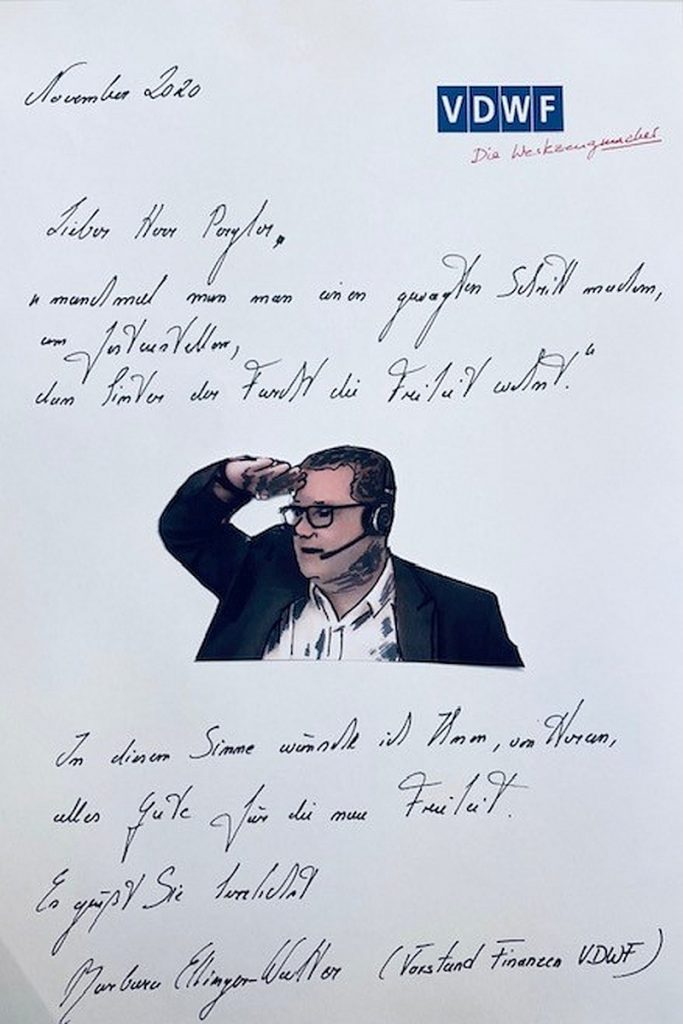 November 2020
VDWF
Die Werkzeugmacher
Lieber Herr
"manchmal muss man einen gewagten Schritt machen,
um festzustellen,
dass hinter der Furcht die Freiheit wohnt."
In diesem Sinne wünscht ich Ihnen, von Herzen,
alles Gute für die neue Freiheit.
Es grüßt Sie herzlichst
Barbara (Vorstand Finanzen VDWF)